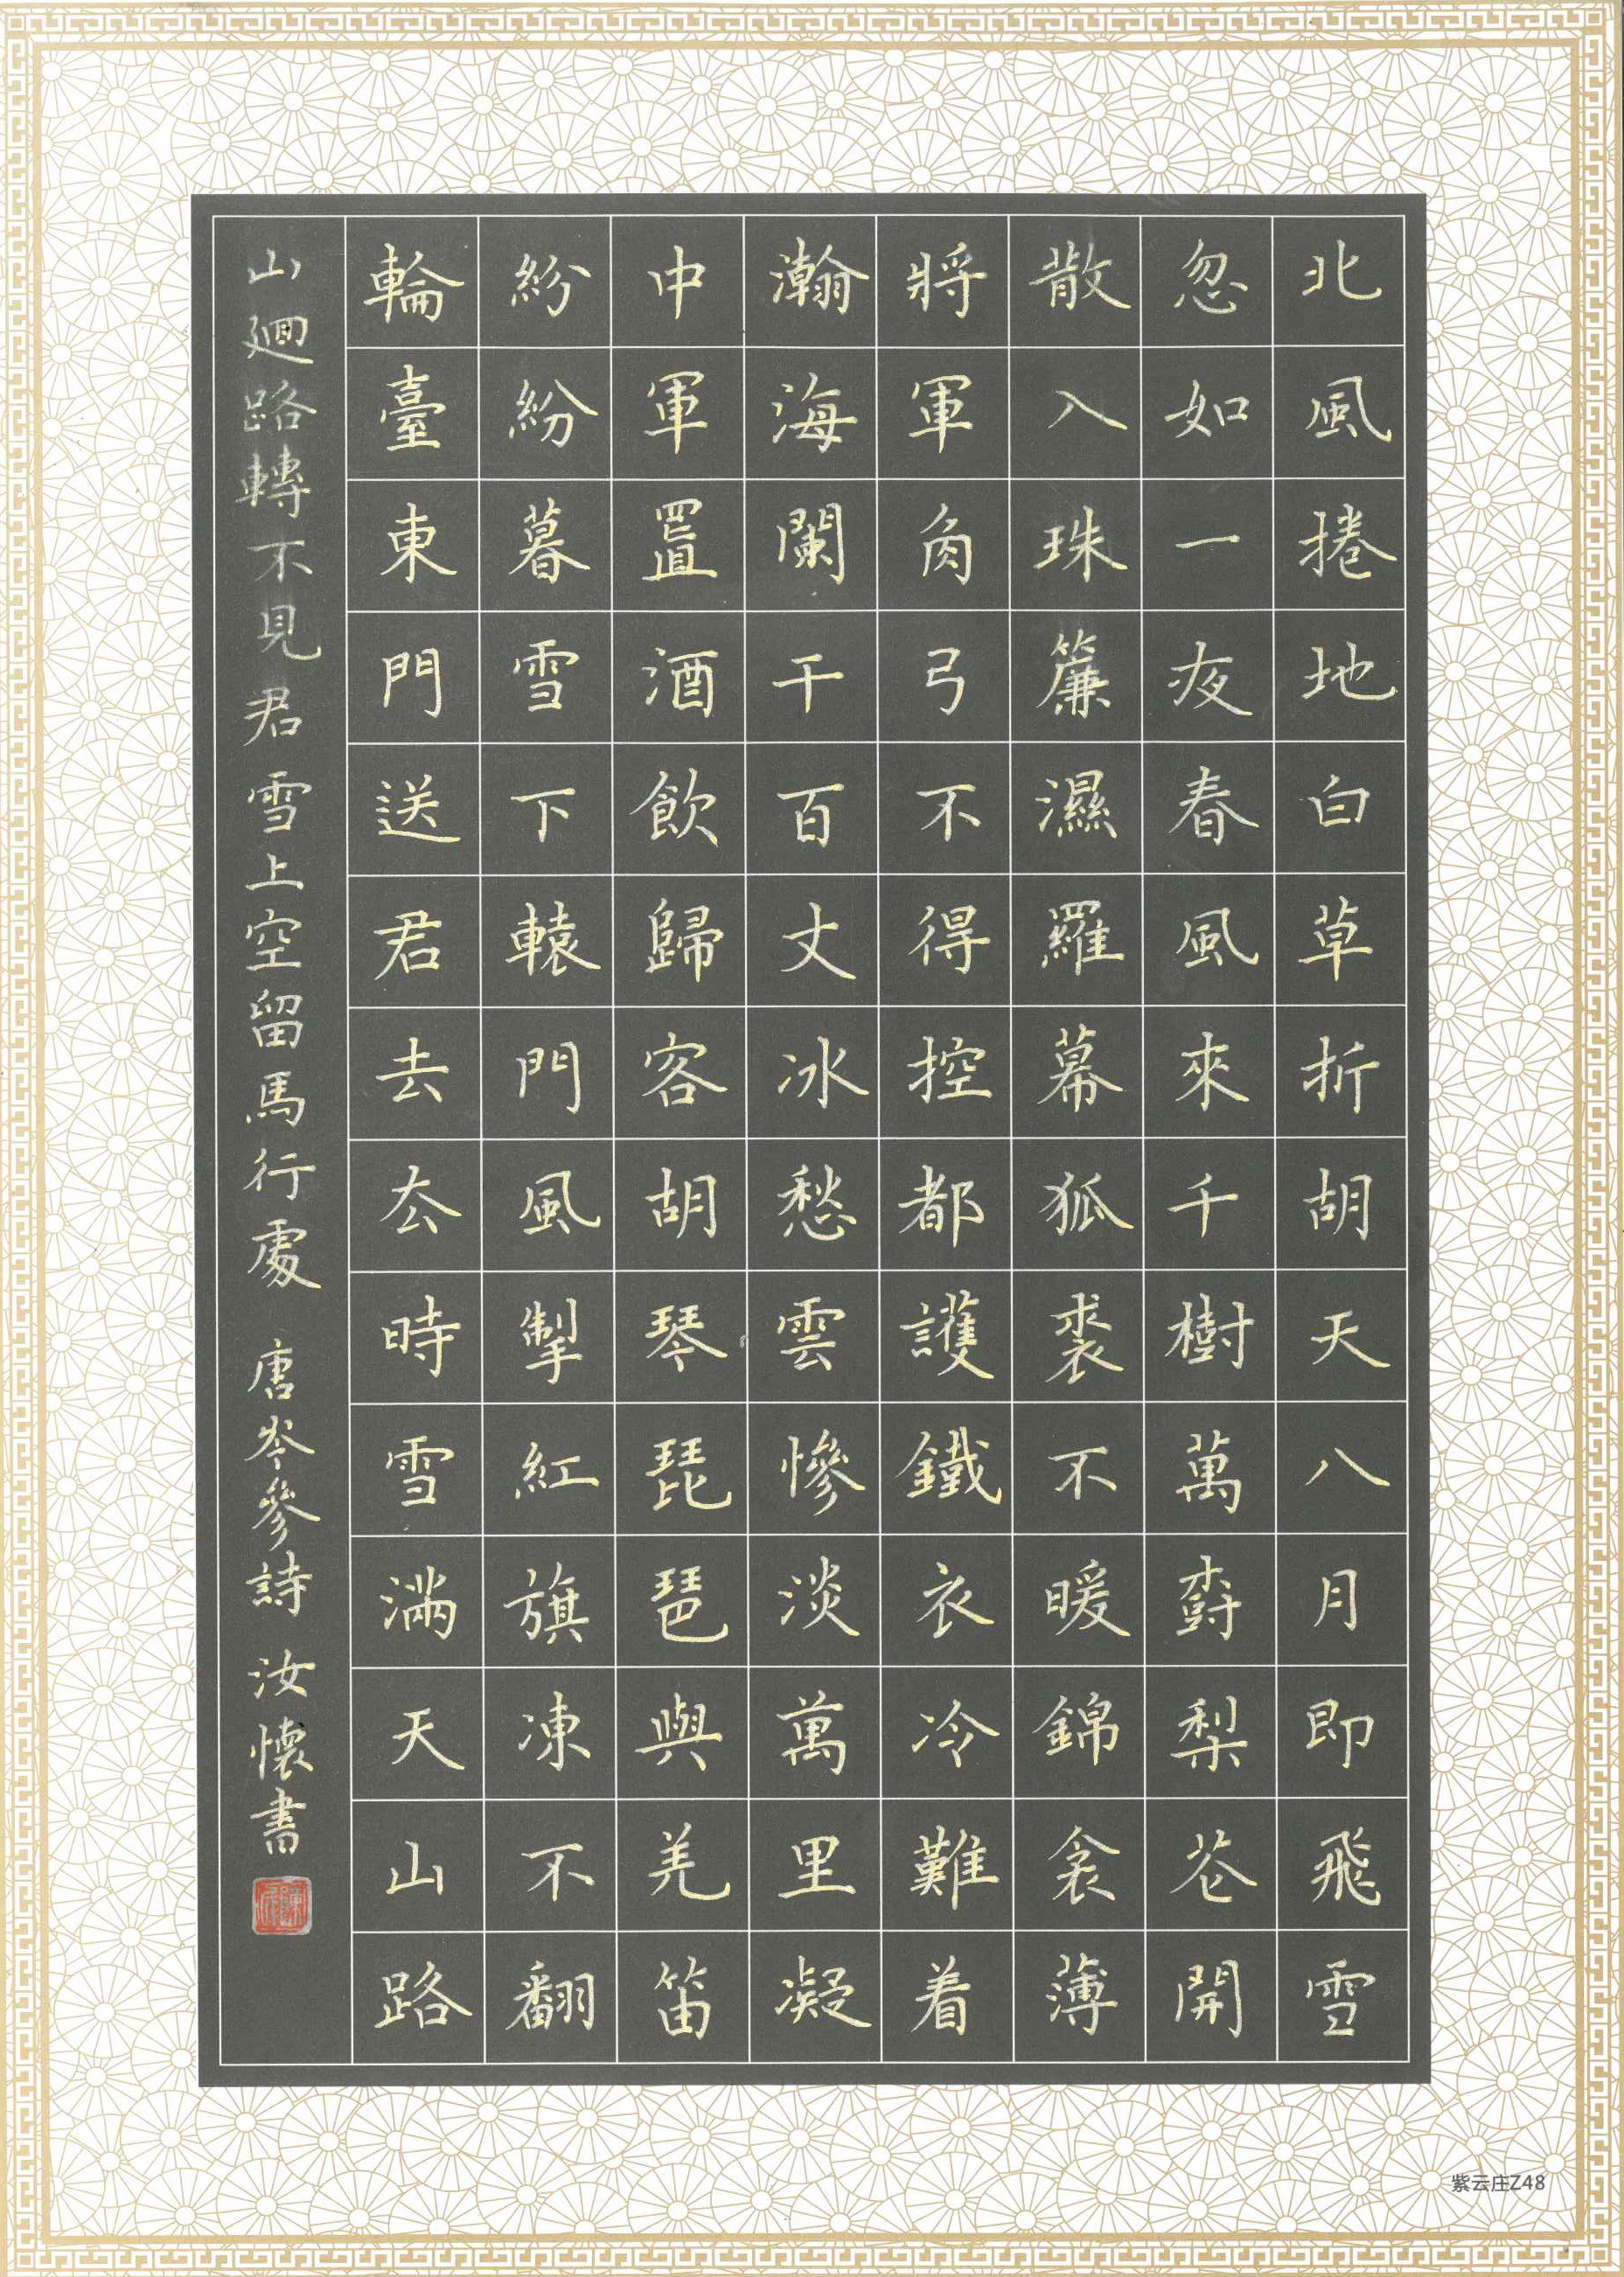 北風捲地白草折胡天八月即飛雪
忽如一夜春風來千樹萬樹梨花開
散入珠簾濕羅幕狐裘不暖錦衾薄
將軍角弓不得控都護鐵衣冷難着
瀚海闌干百丈冰愁雲慘淡萬里凝
中軍置酒飲歸客胡琴琵琶與羌笛
紛紛暮雪下轅門風掣紅旗凍不翻
輪臺東門送君去去時雪滿天山路
山廻路轉不見君雪上空留馬行處 唐岑參詩 汝懷書
紫云庄Z48